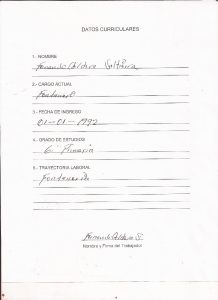 DATOS CURRICULARES
1.- NOMBRE
Fernando Caldera
2.- CARGO ACTUAL
Fontanero
3.- FECHA DE INGRESO
01-01-1992
4.- GRADO DE ESTUDIOS
6º Primaria
5.- TRAYECTORIA LABORAL
Fontanero
Fernando Caldera
Nombre y Firma del Trabajador